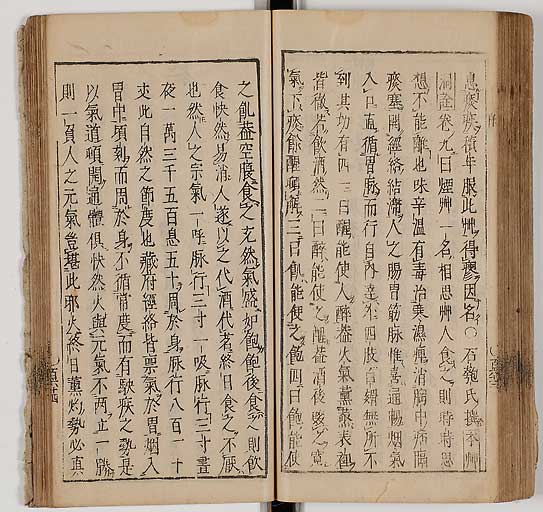 息痰疾積年服此艸得瘳因名○石匏氏撰本艸
洞詮卷九曰煙艸一名相思艸人食之則時時思
想不能離也味辛溫有毒治寒濕痺消胸中痞膈
痰塞開經絡結滯人之腸胃筋脉惟喜通暢烟氣
入口直循胃脉而行自內達外四肢百骸無所不
到其功有四一曰醒能使人醉蓋火氣薰蒸表裡
皆徹若飲酒然二曰醉能使之醒蓋酒後啜之寬
氣下痰餘醒頓解三曰飢能使之飽四曰飽能使
之飢蓋空腹食之充然氣盛如飽飽後食之則飲
食快然易消人遂以之代酒代茗終日食之不厭
也然人之宗氣一呼脉行三寸一吸脉行三寸晝
夜一萬三千五百息五十周於身脉行八百一十
丈此自然之節度也藏府經絡皆禀氣於胃烟入
胃中頃刻而周於身不循常度而有駛疾之勢是
以氣道頓開通體俱快然火與元氣不兩立一勝
則一負人之元氣豈堪此邪火終日薰灼勢必真